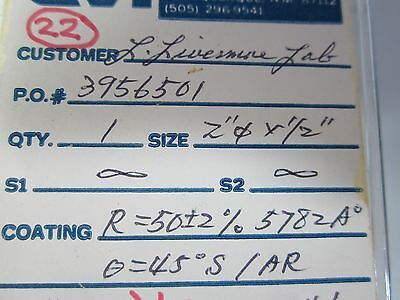 (505) 296-9541
22
CUSTOMER L. Livermore Lab
P.O.# 3956501
QTY. 1 SIZE 2"φ x 1/2"
S1 ∞ S2 ∞
COATING R=50±2% 5782A°
θ=45° S/AR